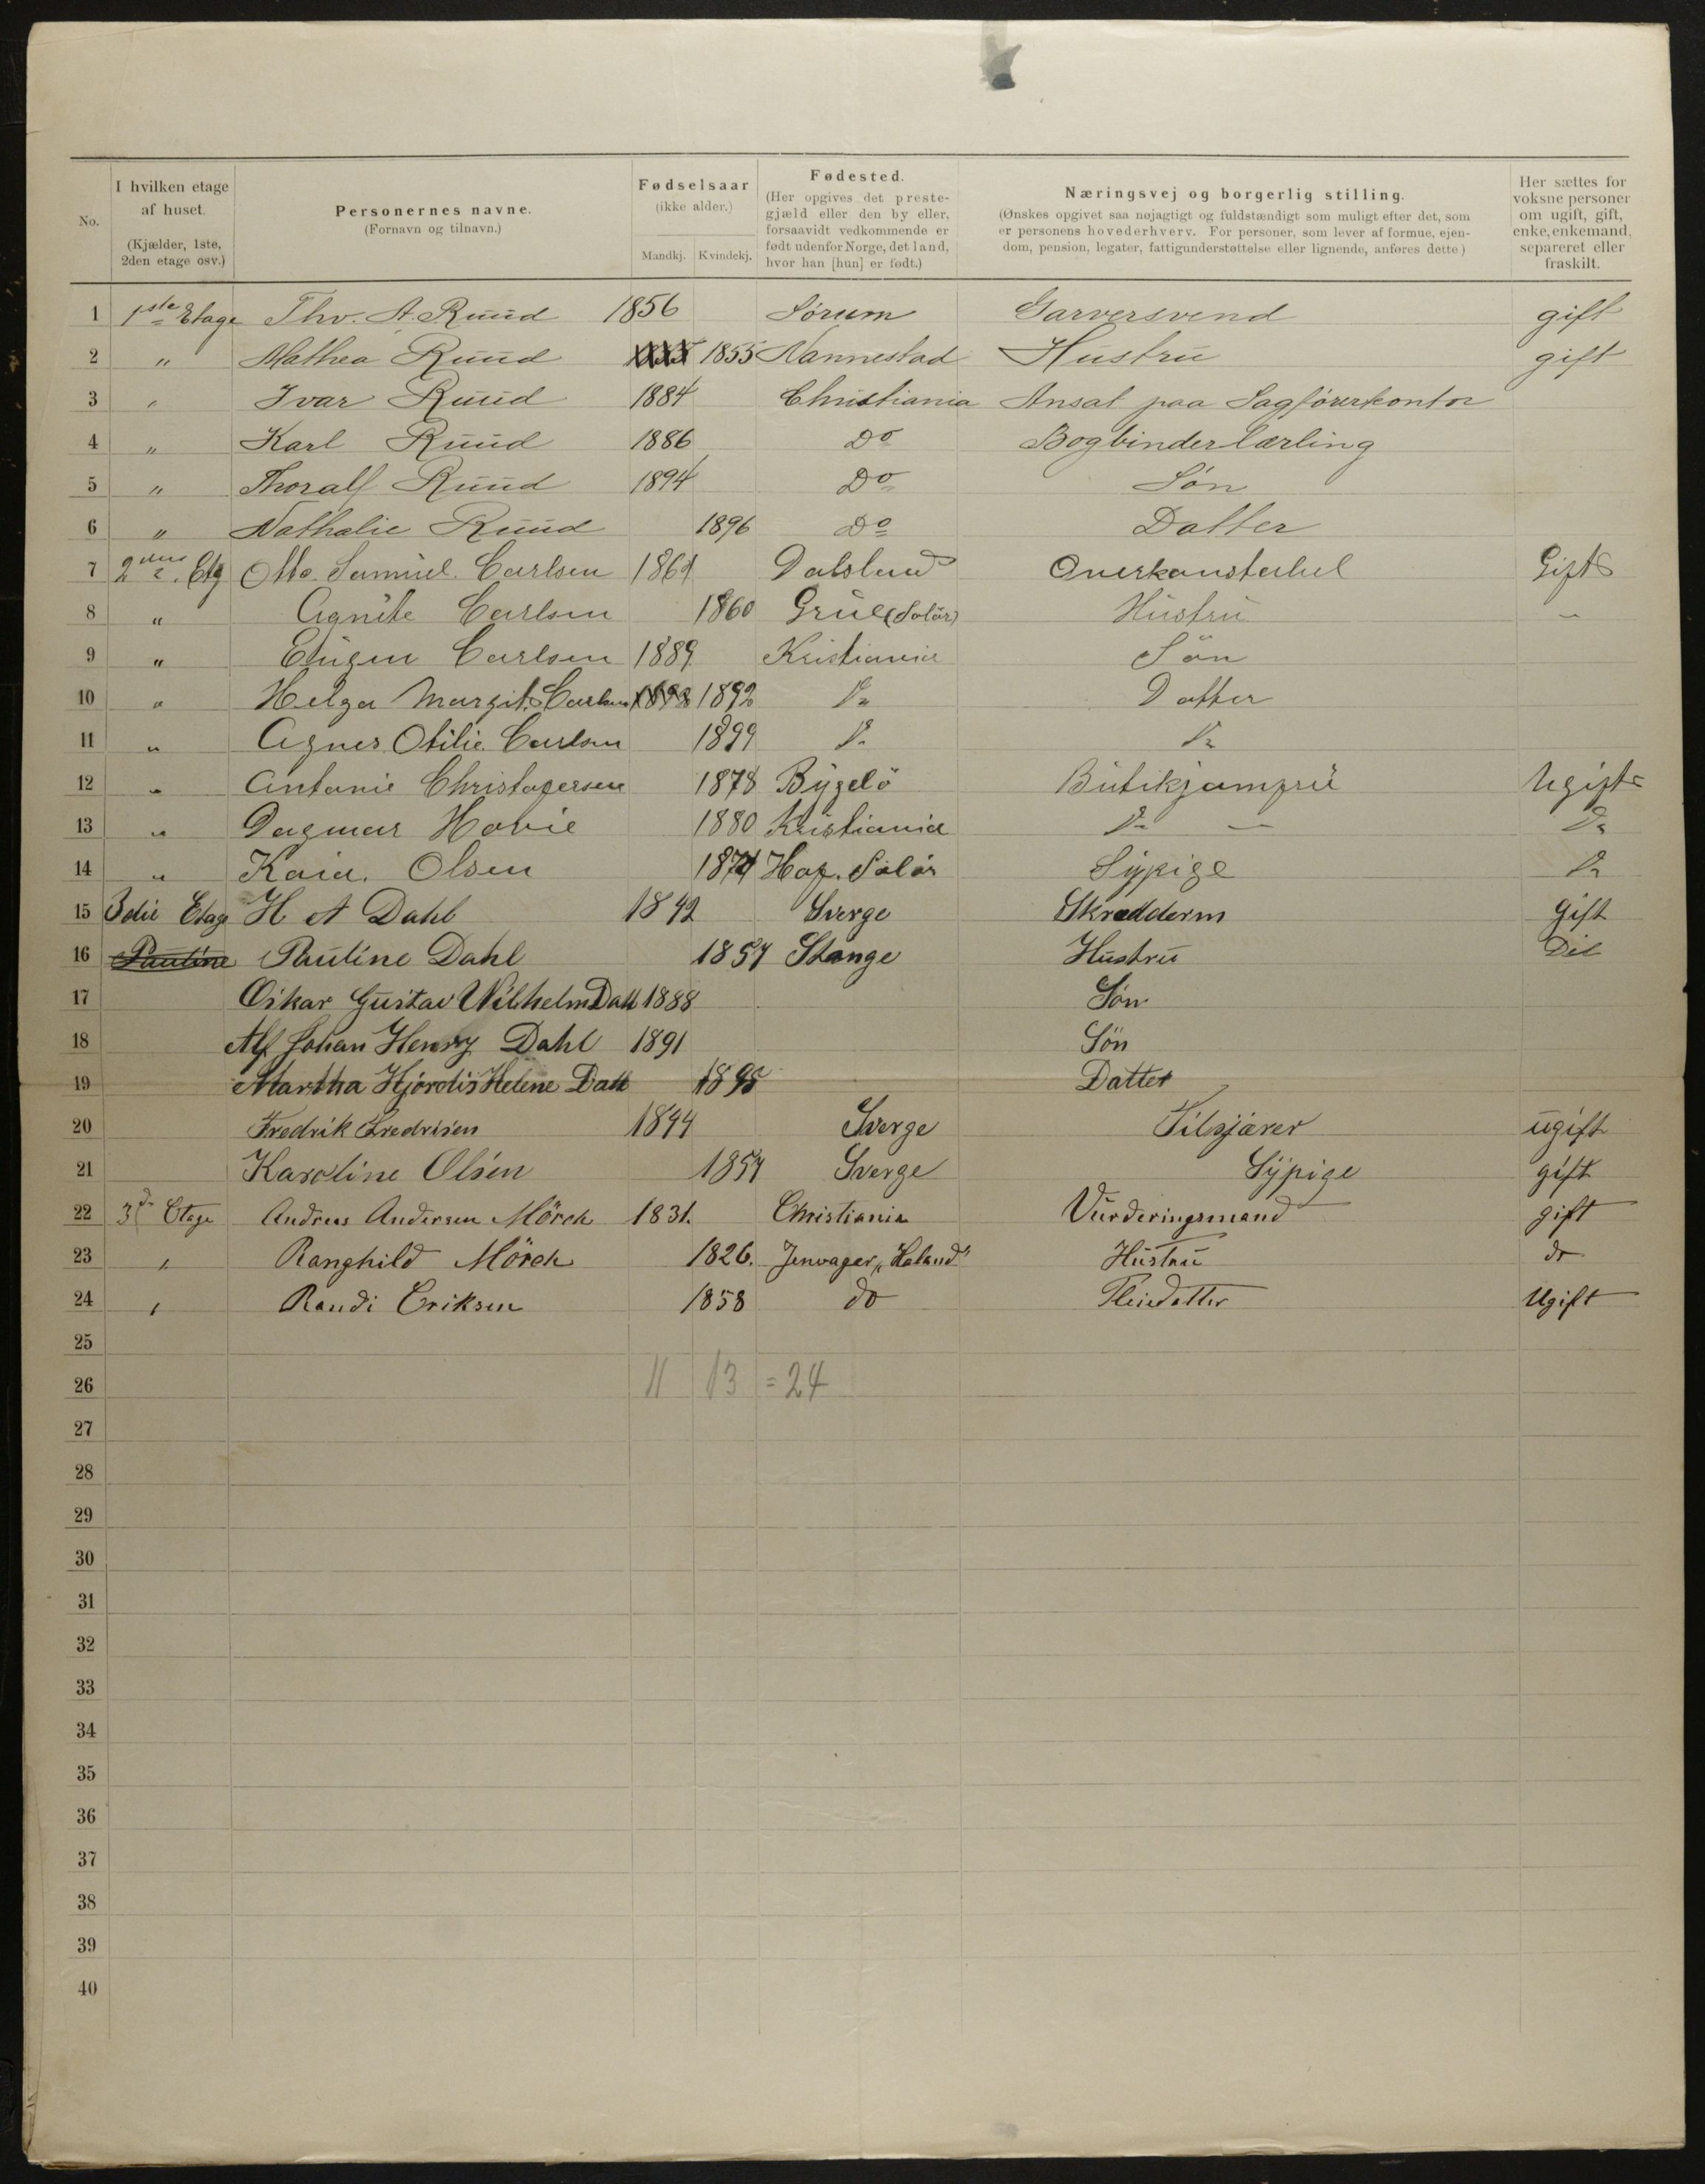 No.
I hvilken etage af huset. (Kjælder, 1ste, 2den etage osv.)
Personernes navne. (Fornavn og tilnavn.)
Fødselsaar (ikke alder.)
Mandkj. Kvindekj.
Fødested. (Her opgives det prestegjæld eller den by eller, forsaavidt vedkommende er født udenfor Norge, det land, hvor han [hun] er født.)
Næringsvej og borgerlig stilling. (Ønskes opgivet saa nøjagtigt og fuldstændigt som muligt efter det, som er personens hovederhverv. For personer, som lever af formue, ejendom, pension, legater, fattigunderstøttelse eller lignende, anføres dette)
Her sættes for voksne personer om ugift, gift, enke, enkemand, separeret eller fraskilt.
1 1ste Etage Thv. A. Ruud 1856 Sørum Garversvend gift
2 " Mathea Ruud 1855 Nannestad Hustru gift
3 " Ivar Ruud 1884 Christiania Ansat paa Sagførerkontor
4 " Karl Ruud 1886 Do Bogbinderlærling
5 " Thoralf Ruud 1894 Do Søn
6 " Nathalie Ruud 1896 Do Datter
7 2den Etg Otto Samuel Carlsen 1861 Dalsland Overkonstabel Gift
8 " Agnite Carlsen 1860 Grue (Solör) Hustru –
9 " Eugen Carlsen 1889 Kristiania Sön
10 " Helga Margit Carlsen 1892 Do Datter
11 " Agnes Otilie Carlsen 1899 Do Do
12 " Antonie Christofersen 1878 Bygdö Butikjomfru Ugift
13 " Dagmar Hovie 1880 Kristiania Do – Do
14 " Kaia. Olsen 1874 Hof. Solör Sypige Do
15 3die Etage H A Dahl 1842 Sverge Skrædderm gift
16 Pauline Pauline Dahl 1857 Stange Hustru Do
17 Oskar Gustav Wilhelm Dahl 1888 Sön
18 Alf Johan Henry Dahl 1891 Sön
19 Martha Hjördis Helene Dahl 1895 Datter
20 Fredrik Fredrisen 1844 Sverge ugift
21 Karoline Olsen 1857 Sverge Sypige gift
22 3die Etage Andreas Andersen Mörch 1831. Christiania Vurderingsmand gift
23 " Ranghild Mörch 1826. "Höland" Hustru do
24 " Randi Eriksen 1858 do Pleiedatter Ugift
25
26 11 13 = 24
27
28
29
30
31
32
33
34
35
36
37
38
39
40